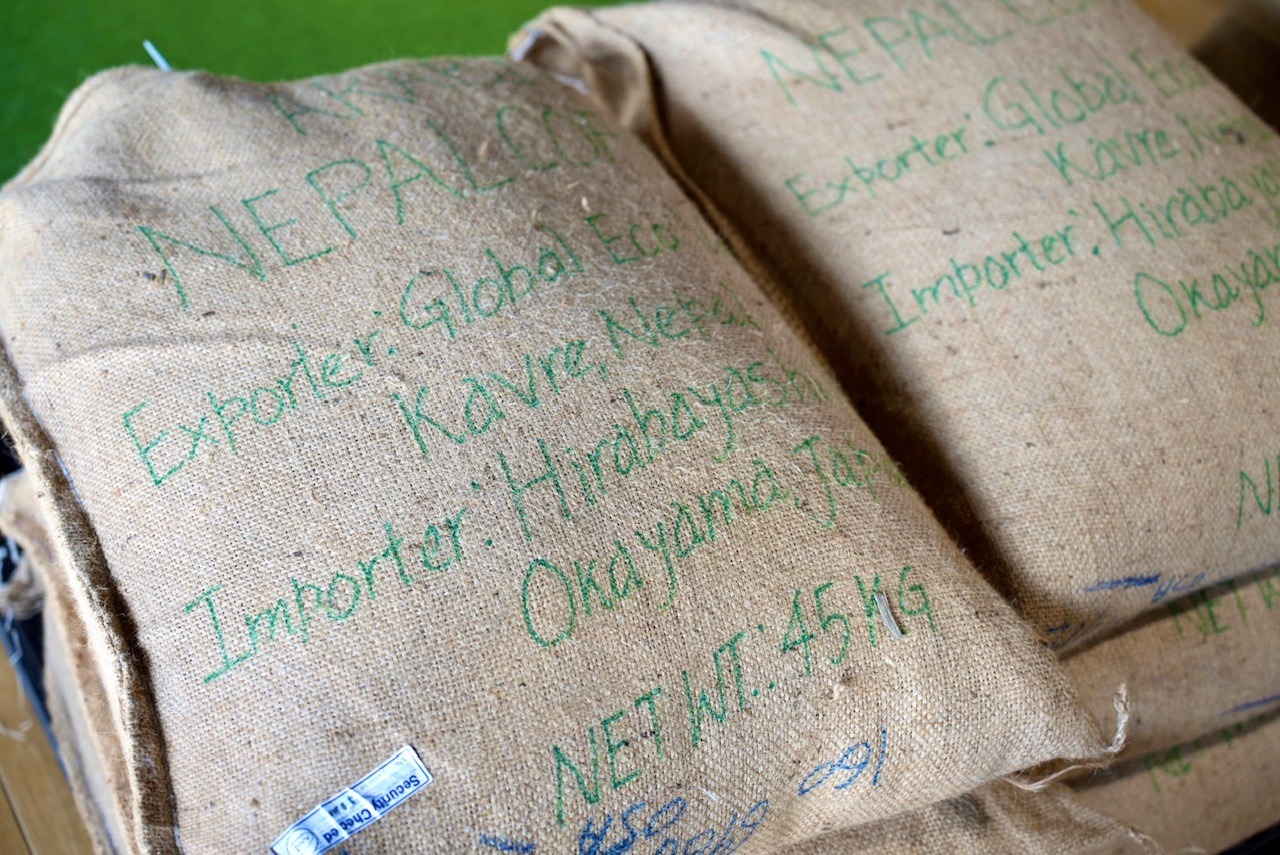 NEPAL COF
Exporter: Global Eco
Kavre, Nepal
Importer: Hirabayashi
Okayama, Japa
NET WT.: 45 KG
Security Che ed
NEPAL CO
Exporter: Global Eco
Kavre, N
Importer: Hirabaya
Okayam
N
NET W
NE